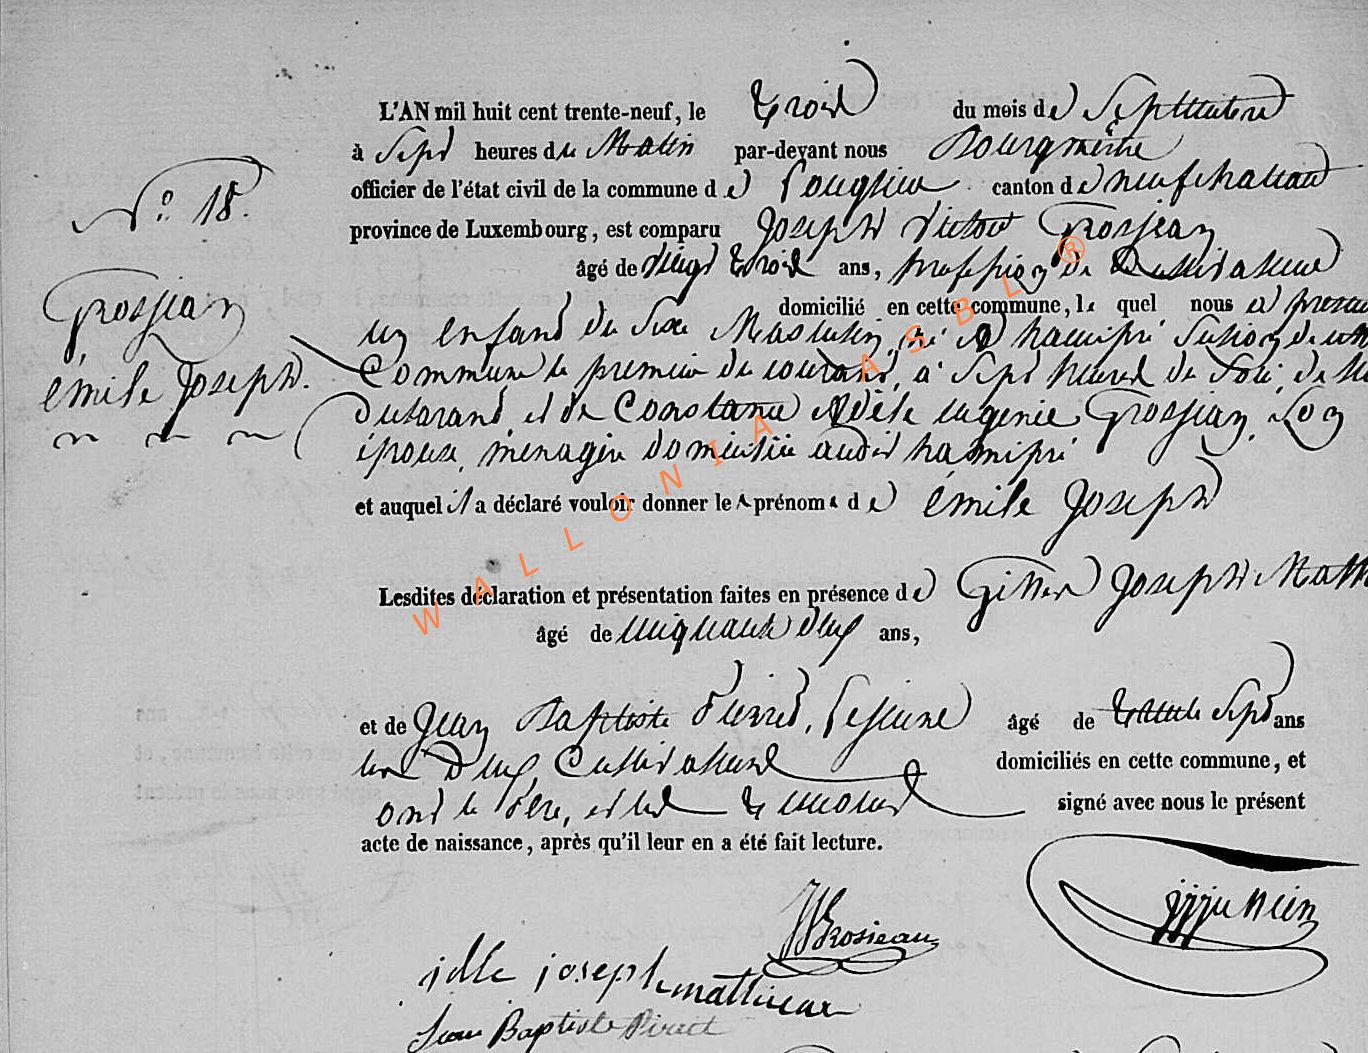 L'AN mil huit cent trente-neuf, le Trois du mois de Septembre
à Sept heures du Matin par-devant nous Bourgmestre
officier de l'état civil de la commune de Longlier canton de neufchateau
province de Luxembourg, est comparu Joseph Victor Grosjean
âgé de vingt trois ans, profession de Cultivateur
domicilié en cette commune, le quel nous a
un enfant du Sexe Masculin, né à hamipré Section de
Commune le premier du courant, à Sept heures du Soir, de
et de Constance Adèle eugenie Grosjean, Son
épouse, menagère domiciliée audit hamipré
et auquel il a déclaré vouloir donner les prénoms de émile Joseph
Lesdites déclaration et présentation faites en présence de Joseph
âgé de cinquante deux ans,
et de Jean Baptiste Lejeune âgé de trente Sept ans
Cultivateurs domiciliés en cette commune, et
ont le Père, et les temoins signé avec nous le présent
acte de naissance, après qu'il leur en a été fait lecture.
N.º 18.
Grosjean
émile Joseph.
Grosjean
joseph
Jean Baptiste
WALLONIA ASBL ®